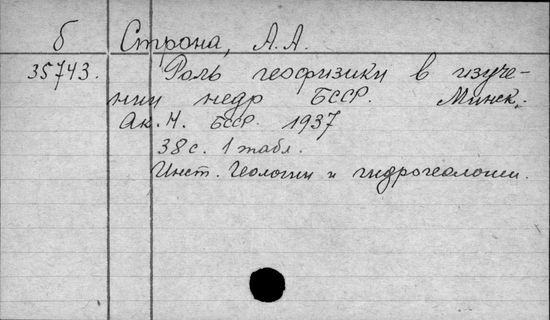 б Строна, А. А.
35743. Роль геофизики в изуче-
нии недр БССР. Минск,
Ак. Н. БССР. 1937
38 с. 1 табл.
Инст. Геологии и гидрогеологии.